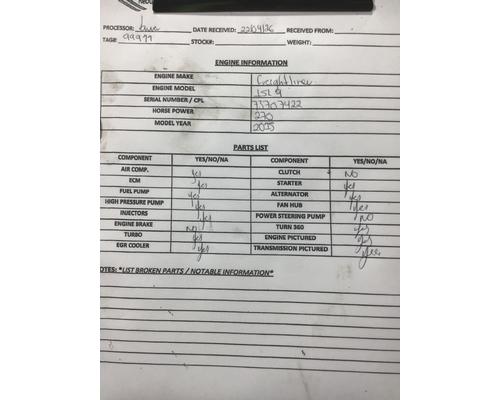 PROCESSOR: DATE RECEIVED: 22/04/26 RECEIVED FROM:
TAG#: 99977 STOCK#: WEIGHT:
ENGINE INFORMATION
ENGINE MAKE freightliner
ENGINE MODEL ISL 9
SERIAL NUMBER / CPL 73707422
HORSE POWER 270
MODEL YEAR
PARTS LIST
COMPONENT YES/NO/NA COMPONENT YES/NO/NA
AIR COMP. yes CLUTCH NO
ECM yes STARTER yes
FUEL PUMP yes ALTERNATOR yes
HIGH PRESSURE PUMP yes FAN HUB yes
INJECTORS yes POWER STEERING PUMP NO
ENGINE BRAKE NO TURN 360 yes
TURBO yes ENGINE PICTURED yes
EGR COOLER yes TRANSMISSION PICTURED yes
OTES: *LIST BROKEN PARTS / NOTABLE INFORMATION*